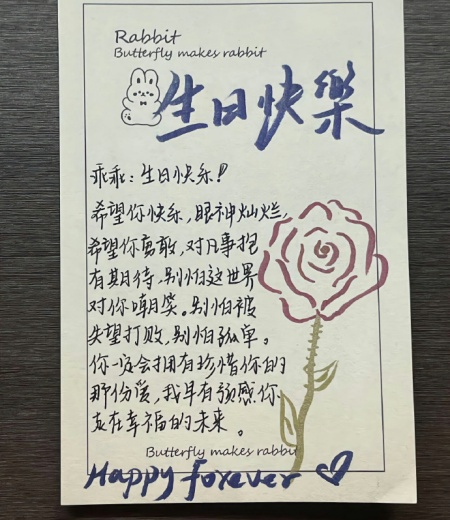 Rabbit
Butterfly makes rabbit
生日快樂
乖乖：生日快乐！
希望你快乐，眼神灿烂，
希望你勇敢，对凡事抱
有期待，别怕这世界
对你嘲笑。别怕被
失望打败，别怕孤单。
你一定会拥有珍惜你的
那份爱，我早有预感你
友在幸福的未来。
Butterfly makes rabbit
Happy forever